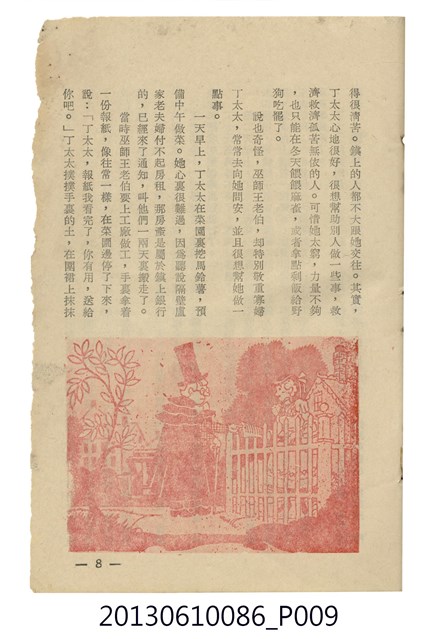 得很淸苦。鎭上的人都不大跟她交往。其實,
丁太太心地很好,很想幫助別人做一些事,救
濟救濟孤苦無依的人。可惜她太窮,力量不夠
,也只能在冬天餵餵麻雀,或者拿點剩飯給野
狗吃罷了。
說也奇怪,巫師王老伯,却特別敬重寡婦
丁太太,常常去向她問安,並且很想幫她做一
點事。
一天早上,丁太太在菜園裏挖馬鈴薯,預
備中午做菜。她心裏很難過,因爲聽說隔壁盧
家老夫婦付不起房租,那房產是屬於鎭上銀行
的,已經來了通知,叫他們一兩天裏搬走了。
當時巫師王老伯要上工廠做工,手裏拿着
一份報紙,像往常一樣,在菜園邊停了下來,
說:「丁太太,報紙我看完了,你有用,送給
你吧。」丁太太撲撲手裏的土,在圍裙上抹抹
— 8 —
20130610086_P009